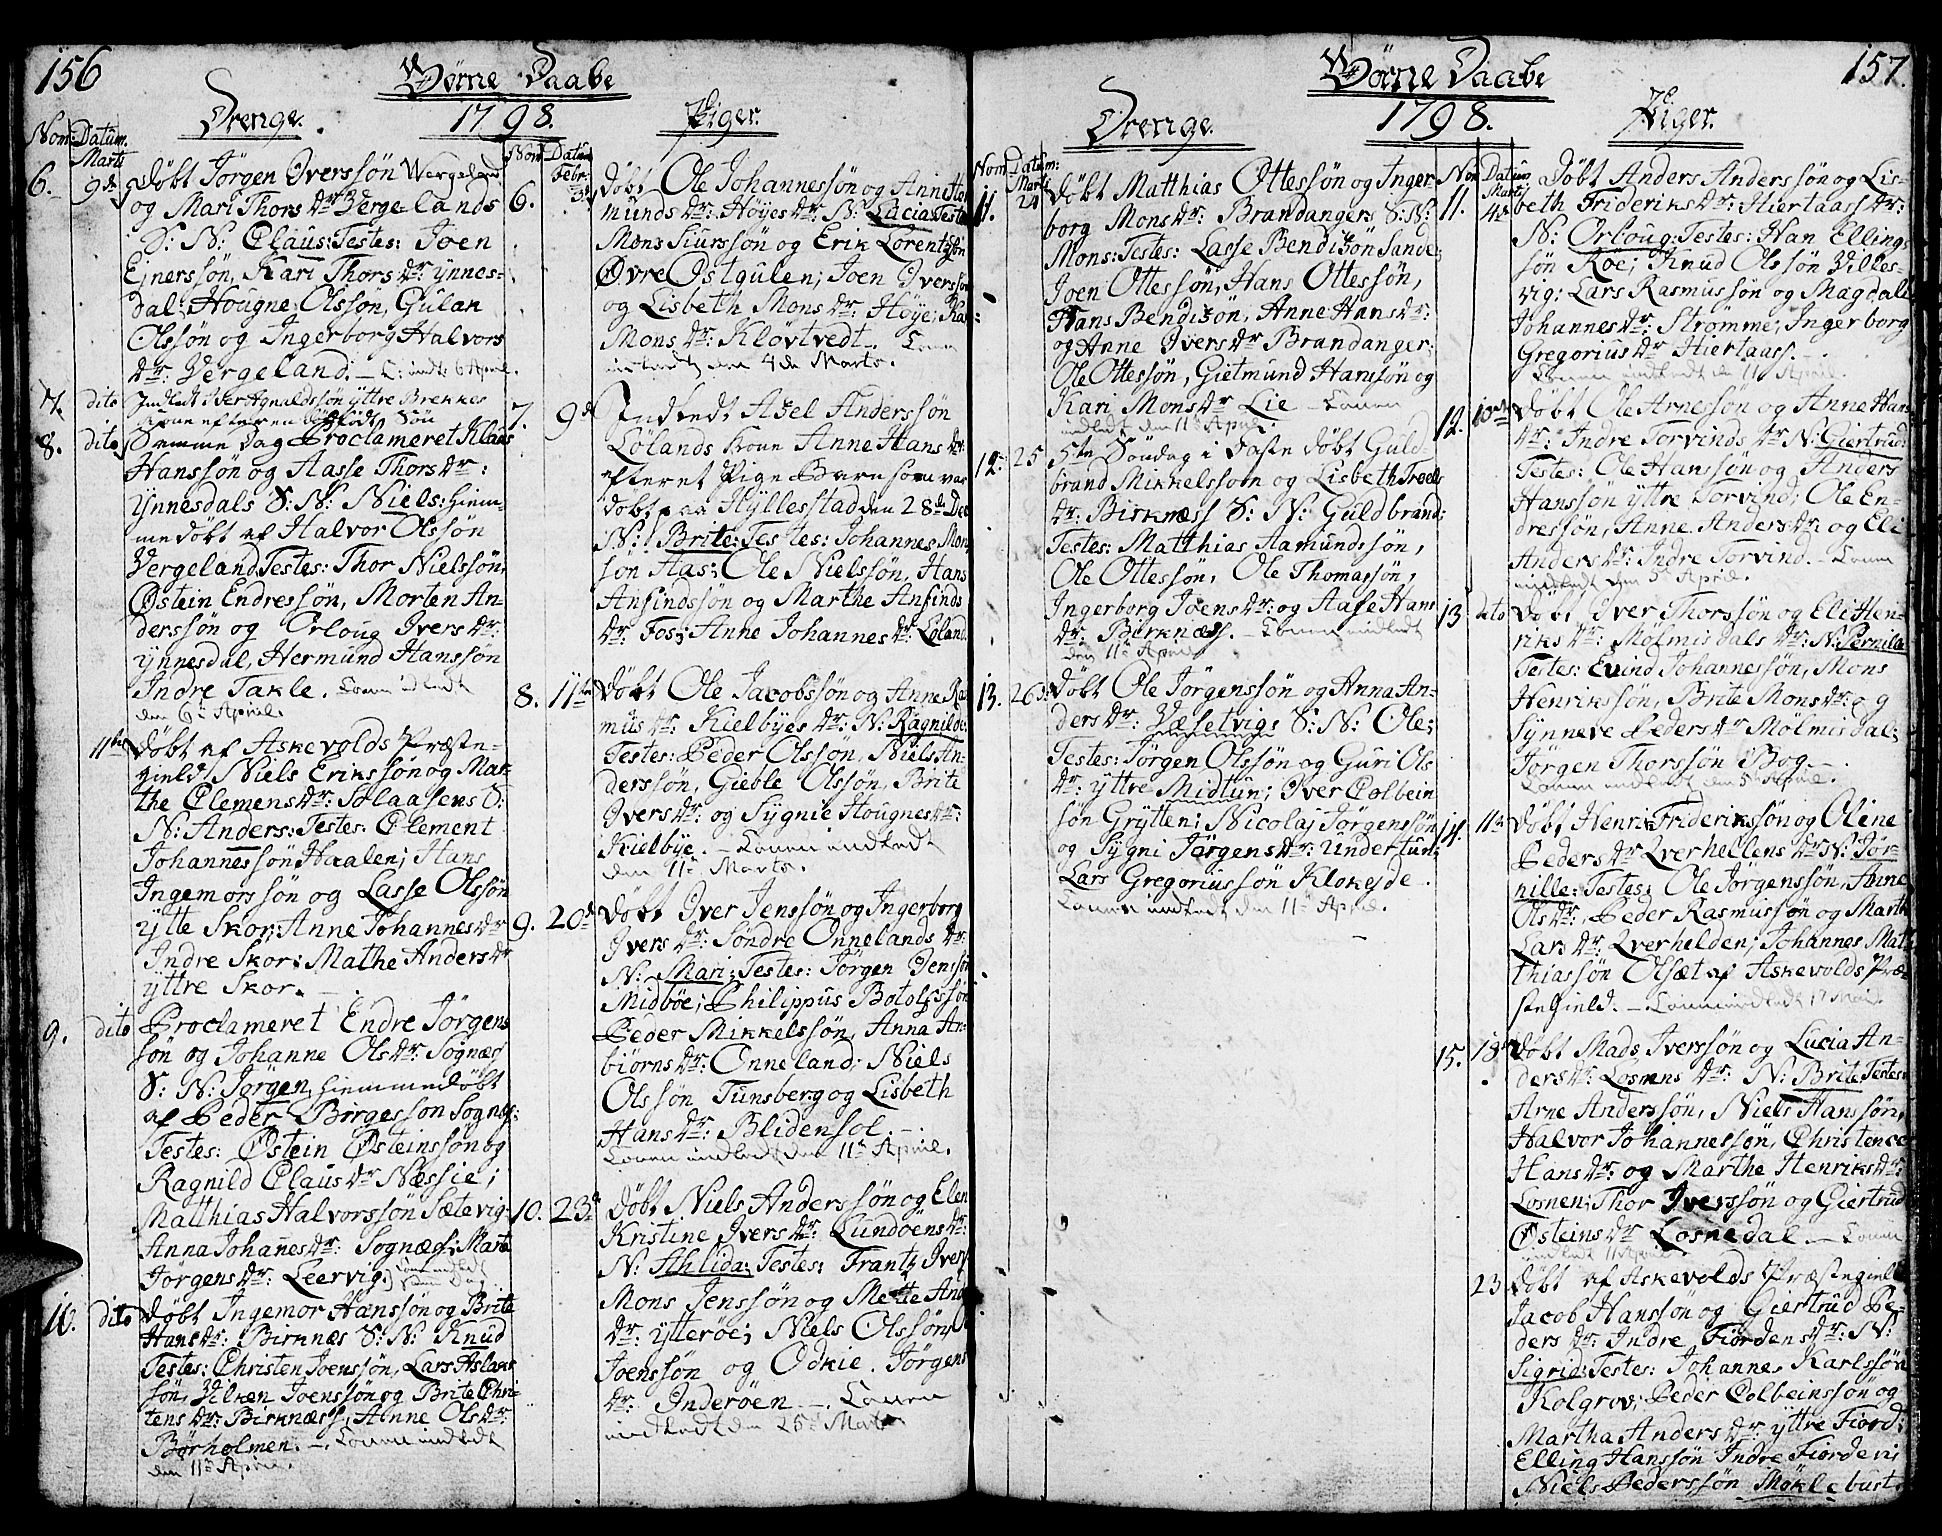 156
Børne Daabe
1798.
Drenge.
Nom: Datum.
Marts
6. 9de
Døbt Jörgen Iverssön Wergeland
og Mari Thors dr: Vergelands
S: N: Claus: Testes: Joen
Ejnerssön, Kari Thors dr: ynnes-
dal; Hougne Olsson, Gulan
Olssön og Ingerborg Halvors
dr: Vergeland. — K: indl: 6 April.
7. dito
Kone efter en dödfödt Sön
8. dito
Samme Dag Proclameret Klaus
Hanssön og Aasse Thors dr:
ynnesdals S: N: Niels: Hiem-
medöbt af Halvor Olssön
Vergeland, Testes: Thor Nielssön,
Østein Endressön, Morten An-
derssön og Orloug Ivers dr:
ynnesdal, Hermund Hanssön
Indre Takle. Konen indledt
den 6te April.
11te
Döbt af Askevolds Præste-
gield Niels Erikssön og Mar-
the Clemens dr: Solaasens S:
N: Anders: Testes: Clement
Johannessön Haalen; Hans
Ingemorssön og Lasse Olssön
ytte Skor; Anne Johannes dr
Indre Skor; Mathe Anders dr
yttre Skor. —
9. dito
Proclameret Endre Jörgens
sön og Johanne Ols dr: Sognæs
S: N: Jörgen, hiemmedöbt
af Peder Börgesson Sognæs:
Testes: Østein Østeinssön og
Ragnild Claus dr Næssie;
Matthias Halvorssön Sætevig
Anna Johanes dr: Sognæs; Marte
Jörgens dr: Leervig;
10. dito
Döbt Ingemor Hanssön og Brite
Hans dr: Birknæs S: N: Knud
Testes: Christen Joenssön, Lars Aslak
sön, Vilken Joenssön og Brite Chri-
tens dr: Birknæss, Anne Ols dr:
Børholmen. — Konen indledt
den 11te April.
Piger.
Nom Datum
Febr:
6.
Döbt Ole Johannessön og Anne Her
munds dr: Höyes dr: N: Lucia: Testes
Mons Siurssön og Erik Lorentssön
Øvre Østgulen; Joen Iverssön
og Lisbeth Mons dr: Höye; Ka-
Mons dr: Klövtvedt. Konen
indledt den 4de Marts.
7. 9de
Indledt Axel Anderssön
Lölands Kone Anne Hans dr
efteret Pige Barn som var
döbt paa Hyllestad den 28de Dec
N: Brite: Testes: Johannes Mon
son Aas; Ole Nielssön, Hans
Anfindssön og Marthe Anfinds
dr: Foss; Anne Johannes dr: Löland.
8. 11te
Döbt Ole Jacobssön og Anne Ras
mus dr: Kielbyes dr: N: Ragnilde:
Testes: Peder Olsson, Niels An-
derssön, Gieble Olssön, Brite
Ivers dr: og Sygnie Hougnes dr:
Kielbye. — Konen indledt
den 11te Marts.
9. 20de
Döbt Iver Jenssön og Ingerborg
Ivers dr: Söndre Onnelands dr:
N: Mari; Testes: Jörgen Jenssön
Midböe; Philippus Botolfssön
Peder Mikkelssön, Anna An-
biörns dr: Onneland; Niels
Olssön Tunsberg og Lisbeth
Hans dr: Blidensol. —
Konen indledt den 11te April.
10. 23de
Döbt Niels Anderssön og Elen
Kristine Ivers dr: Lundöens dr:
N: Ahlida; Testes: Frantz Ivers
Mons Jenssön og Mette And
dr: ytteröe; Niels Olssön, O
Joenssön og Odkie Jörgens
dr: Inderöen —. Konen
indledt den 25de Marts.
157.
Børne Daabe
1798.
Drenge.
Nom Datum:
Marts
11. 24
Döbt Matthias Ottessön og Inger
borg Mons dr: Brandangers S: N:
Mons: Testes: Lasse Bendixön Sande;
Joen Ottessön, Hans Ottessön,
Hans Bendixön, Anne Hans dr:
og Anne Ivers dr Brandanger;
Ole Ottessön, Gietmund Hanssön og
Kari Mons dr Lie — Konen
indledt den 11te April.
12. 25
5te Söndag i Faste döbt Guld-
brand Mikkelssom og Lisbeth Troels
dr: Birknæss S: N: Guldbrand;
Testes: Matthias Aamundssön,
Ole Ottessön, Ole Thomassön,
Ingerborg Joens dr: og Aase Hans
dr: Birknæss. — Konen indledt
den 11te April
13. 26de
Döbt Ole Jörgenssön og Anna An-
ders dr: Væsetvigs S: N: Ole;
Testes: Jörgen Olssön og Guri Ols
dr: yttre Midtun; Iver Colbein
sön Grytten; Nicolaj Jörgenssön
og Sygni Jörgens dr: Undertun;
Lars Gregoriussön Klokejde.
Konen indledt den 11te April.
Piger.
No Datum
Martj
11. 4de
Döbt Anders Anderssön og Lis-
beth Frideriks dr: Hiertaass dr:
N: Orloug: Testes: Han Elling-
sön Roe; Knud Olssön Villes-
vig; Lars Rasmussön og Magdale
Johannes dr: Strömme; Ingerborg
Gregorius dr Hiertaass. —
Konen indledt d: 11te April.
12. 10de
Döbt Ole Arnessön og Anne Hans
dr: Indre Torvinds dr N: Giertrud:
Testes: Ole Hanssön og Anders
Hanssön yttre Torvind; Ole En-
dressön, Anne Anders dr: og Eli
Anders dr: Indre Torvind. — Konen
indledt den 5te April.
13. dito
Döbt Iver Thorssön og Eli Hen-
riks dr: Mölmisdals dr: N: Pernila
Testes: Evind Johannessön, Mons
Henrikssön, Brite Mons dr: og
Synneve Peders dr Mölmisdal;
Jörgen Thorssön Bog. —
Konen indledt den 5te April.
14. 11te
Döbt Henrik Friderikssön og Oline
Peders dr Qverhellens dr N: Jör-
nille: Testes: Ole Jörgenssön, Anne
Ols dr:, Peder Rasmussön og Marthe
Lars dr: Qverhelden; Johannes Mat
thiassön Olsæt af Askevolds Præ-
stegield. — Konen indledt
15. 18de
Döbt Mads Iverssön og Lucia An-
ders dr: Losnens dr: N: Brite Testes:
Arne Anderssön, Niels Hanssön,
Halvor Johannessön, Christence
Hans dr: og Marthe Henriks dr:
Losnen; Thor Iverssön og Giertrud
Østeins dr Losnedal. — Konen
indledt 11 April
23
Döbt af Askevolds Præstegield
Jacob Hanssön og Giertrud Pe-
ders dr: Indre Fiordens dr: N:
Sigrid: Testes: Johannes Karlssön
Kolgrov; Peder Colbeinssön og
Martha Anders dr: yttre Fiord:
Elling Hanssön Indre Fiorden;
Niels Pederssön Möklebust.